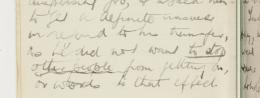 to get a definite answer
in regard to his transfer,
as I did not want to stop
other people from getting on,
or words to that effect